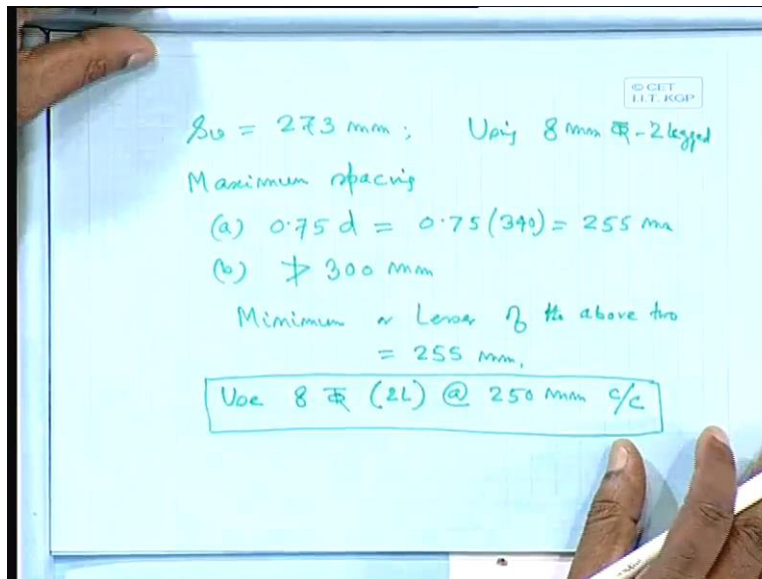 © CET
I.I.T. KGP
Sv = 273 mm; Using 8 mm - 2 legged
Maximum spacing
(a) 0.75 d = 0.75 (340) = 255 mm
(b) ≯ 300 mm
Minimum or Lesser of the above two
= 255 mm.
Use 8 (2L) @ 250 mm c/c